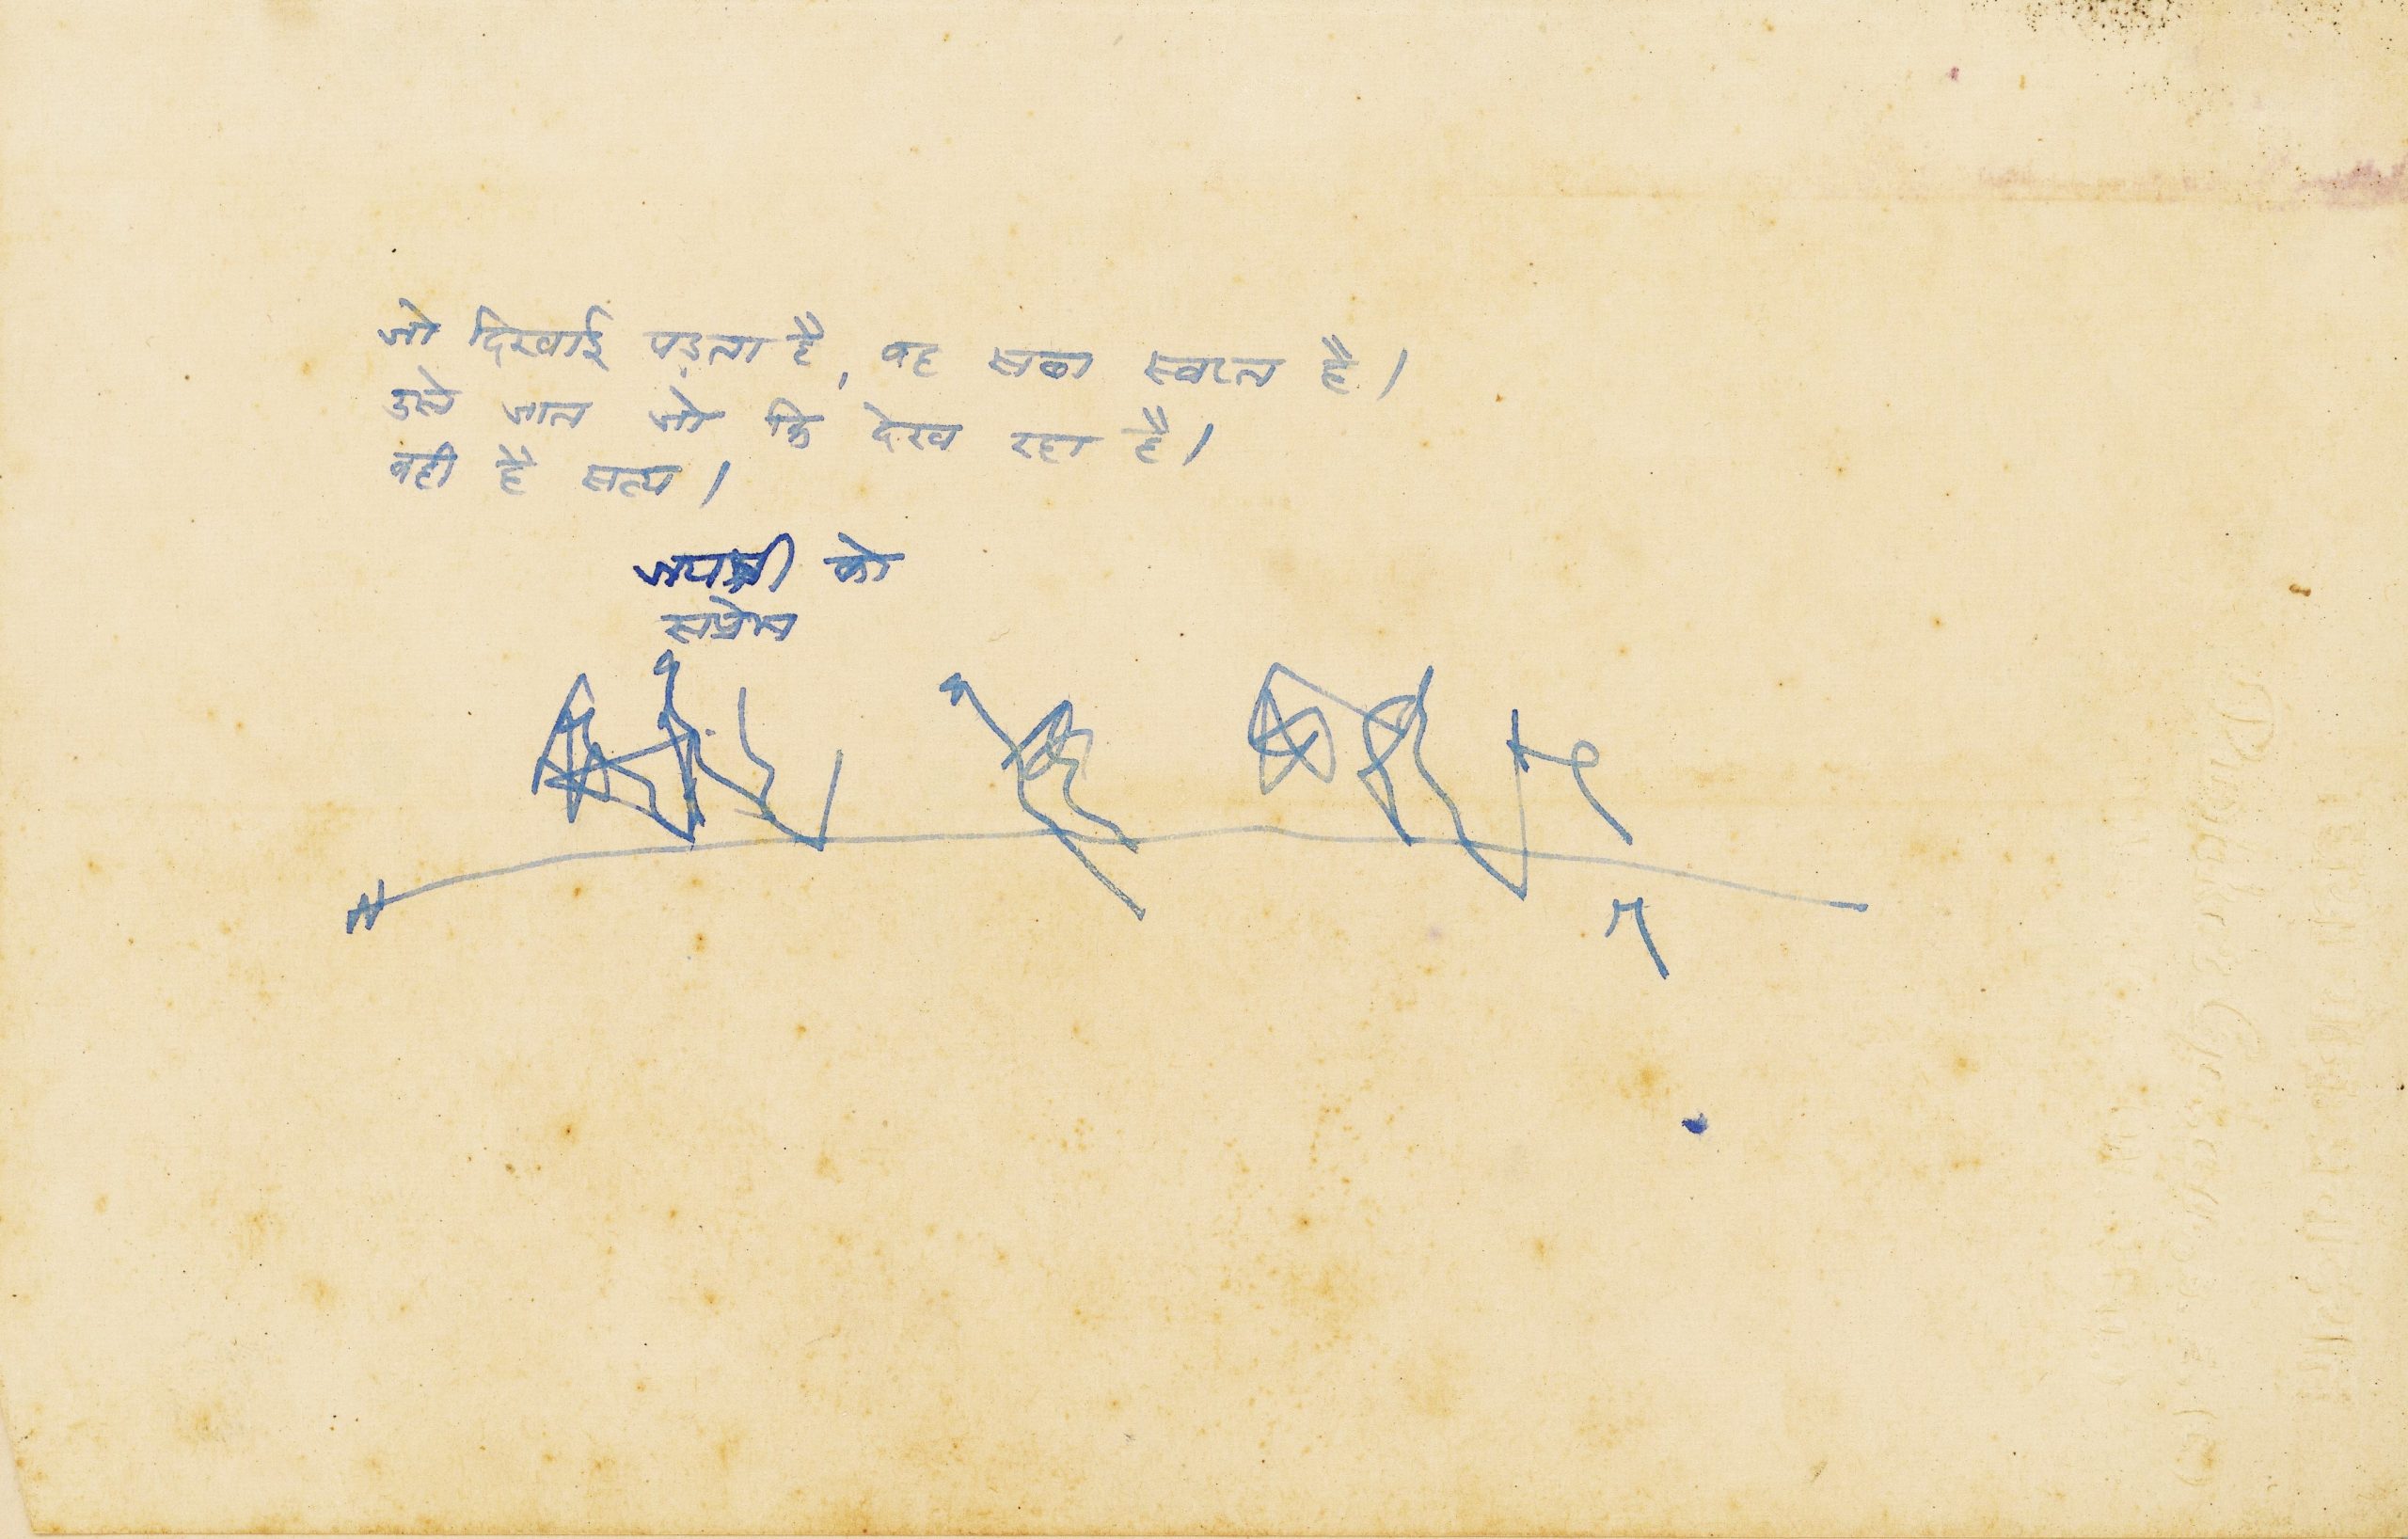 जो दिखाई पड़ता है, वह सब स्वप्न है।
उसे जान जो कि देख रहा है।
वही है सत्य।
जयश्री को
सप्रेम